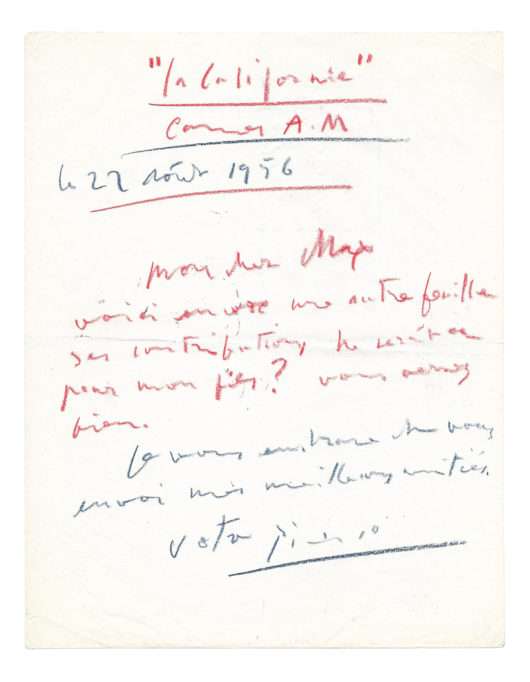 "La Californie"
Cannes A.M
le 22 Août 1956
mon cher Max
voici encore une autre feuille
des contributions
pour mon fils? vous verrez
bien.
Je vous embrasse vous
envoi mes meilleures amitiés.
Votre Picasso